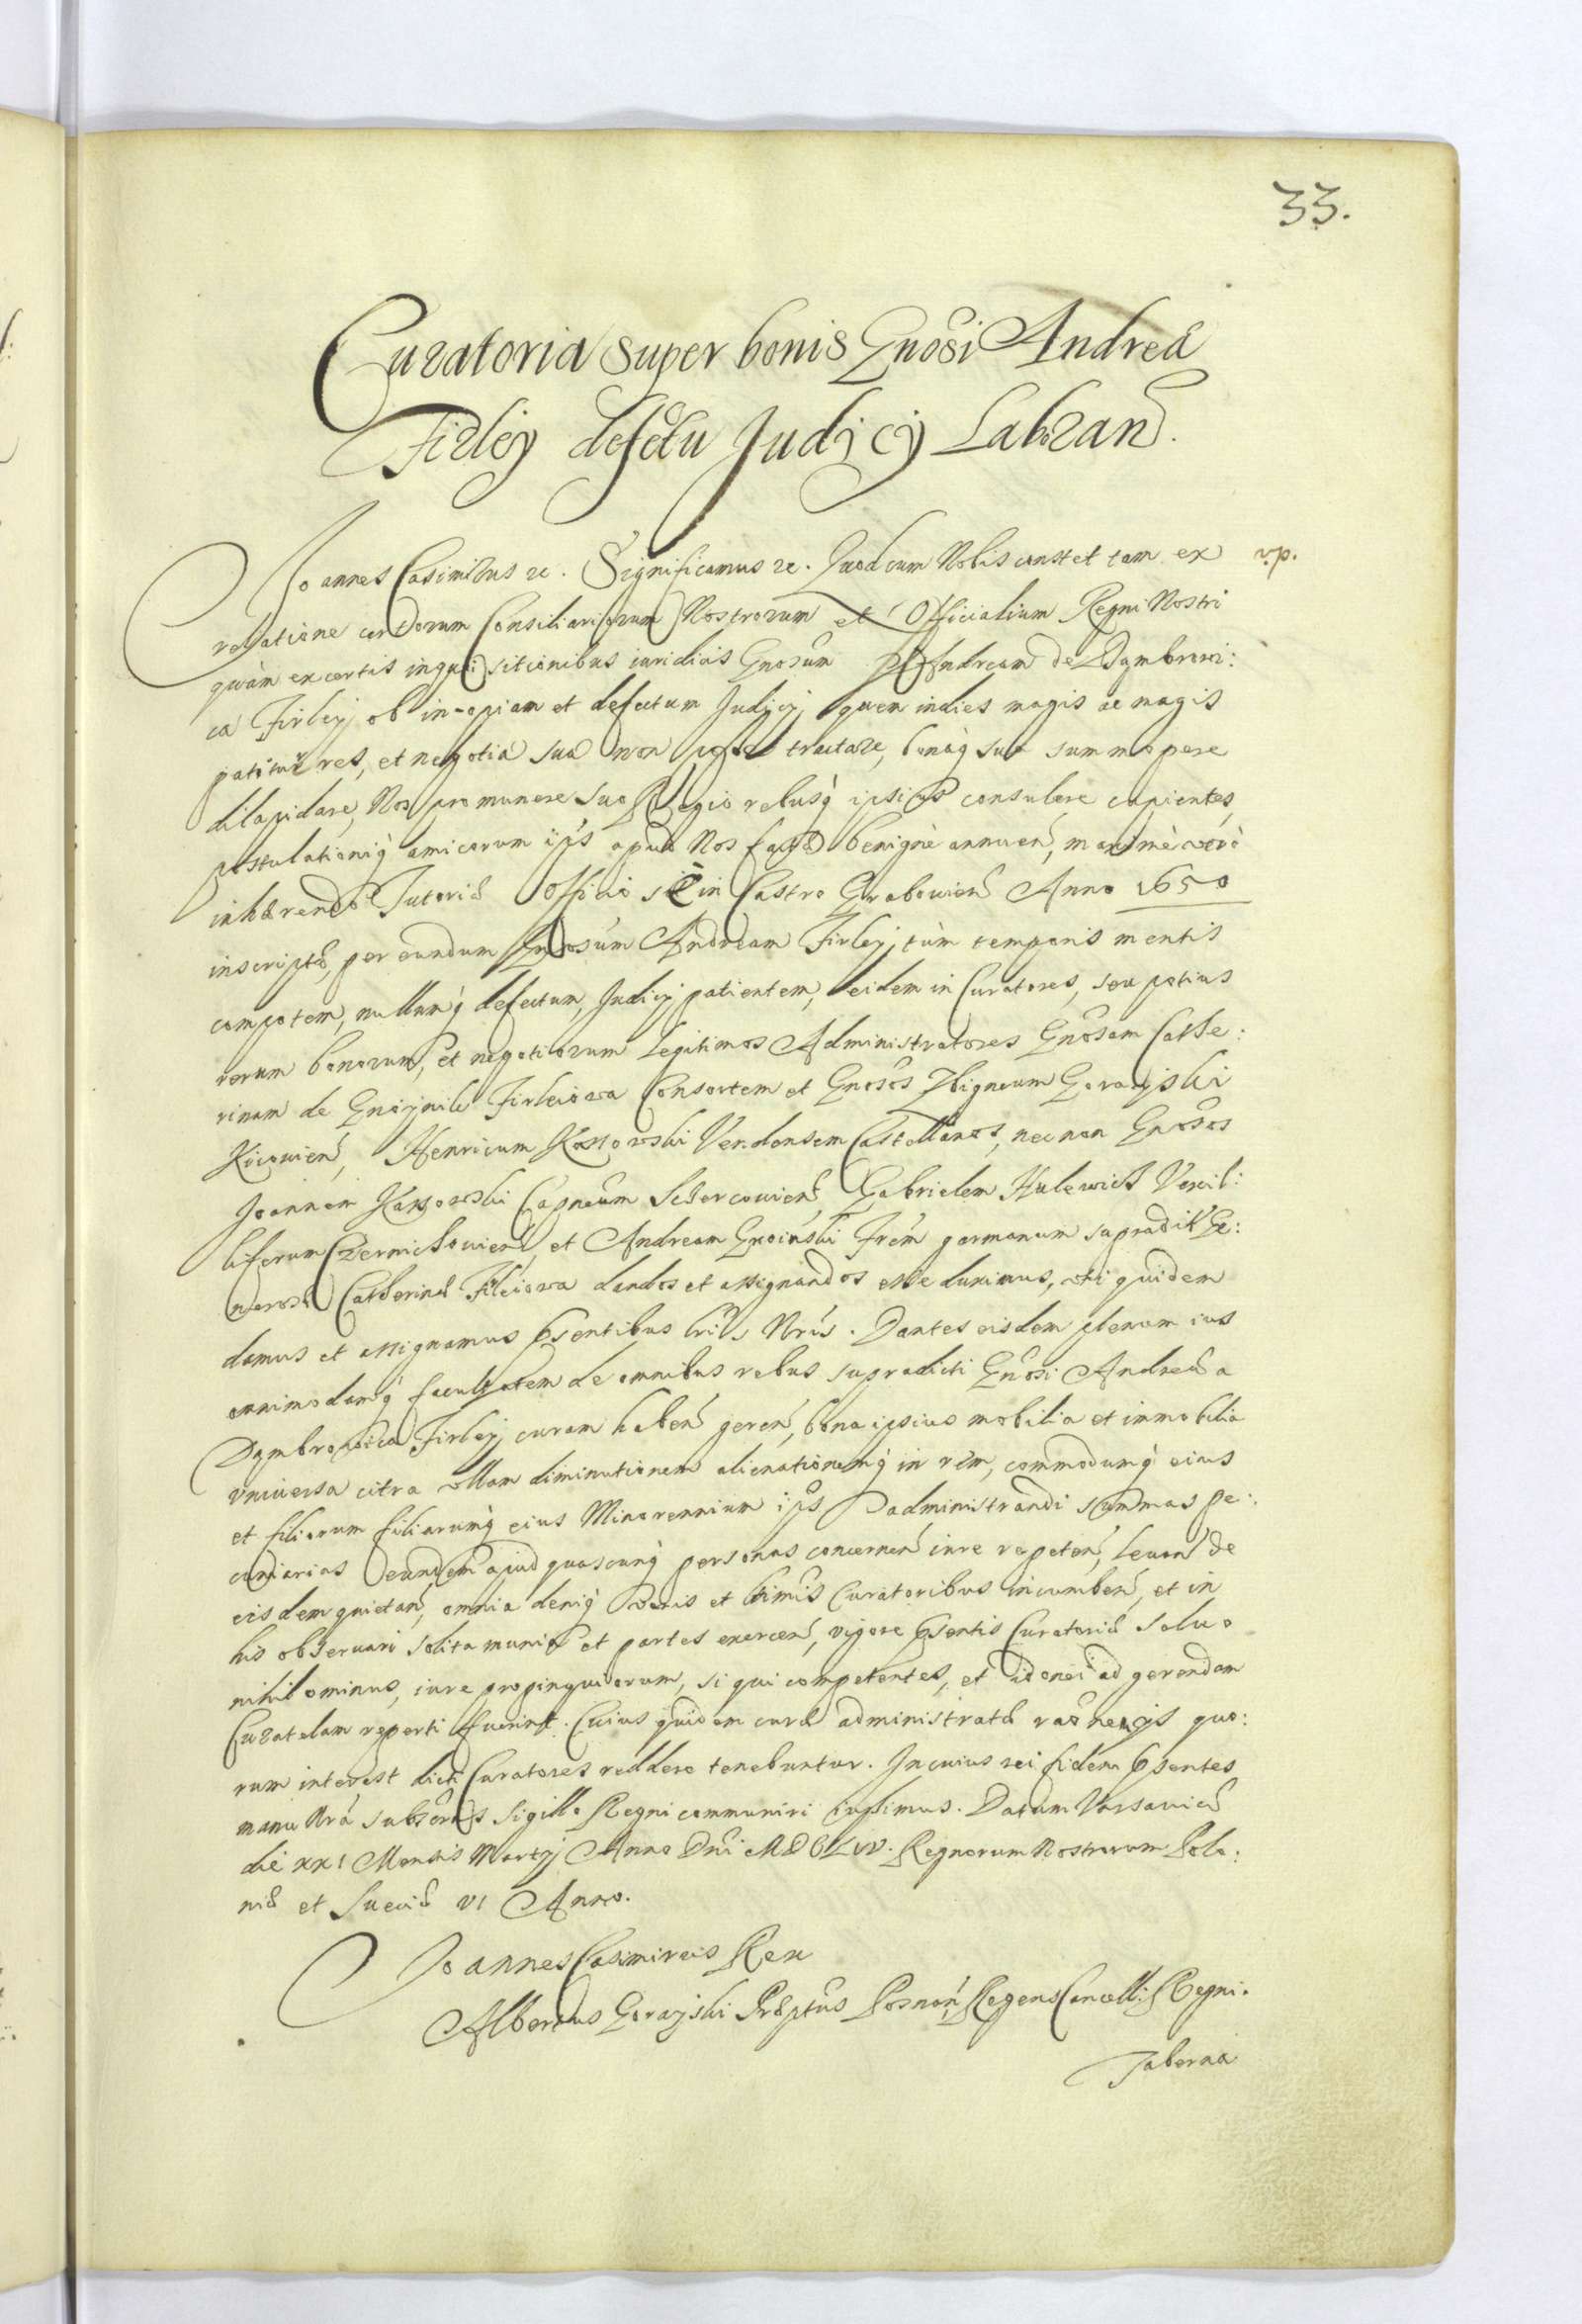 33.
Curatoria super bonis Gnosi Andreæ
Firley defectu Judicij Laboran
Joannes Casimirus etc. Significamus etc. Quod cum Nobis constet tam ex v.p.
relatione certorum Consiliariorum Nostrorum et Officialium Regni Nostri
quàm ex certis inquisitionibus iuridicis Gnosum Andream de Dąmbrowi:
ca Firley ob inopiam et defectum Judicij, quem indies magis ac magis
patitur res, et negotia sua non posse tractare, bonaq́ sua summopere
dilapidare, Nos pro munere suo Regio rebusq́ ipsius consulere cupientes,
postulationiq́ amicorum ips apud Nos benignè annuen, maximè verò
inhærendo Tutoriæ Officio in Castro Grabowien Anno 1650
inscriptæ, per eundum Gnosum Andream Firley, tùm temporis mentis
compotem, nullumq́ defectum, Judicij patientem, eidem in Curatores, seu potius
rerum bonorum, et negotiorum legitimos Administratores Gnosam Cathe:
rinam de Gnoynik Firleiowa Consortem et Gnosos Zbigneum Gorayski
Kiiouien, Henricum Kossowski Vendensem Castellanos, necnon Gnosos
Joannem Karsowski Capneum Gabrielem Hulewicz Vexil:
liferum Czernichouien, et Andream Gnoiński Frem germanum supradictæ Ge:
nerosæ Catherinæ Firleiowa dandos et assignandos esse duximus, uti quidem
damus et assignamus Psentibus lris Nris. Dantes eisdem plenam ius
omnimodamq́ facultatem de omnibus rebus supradicti Gnosi Andreæ a
Dąmbrowica Firley curam haben geren, bona ipsius mobilia et immobilia
vniuersa citra ullam diminutionem alienationemq́ in rem, commodumq́ eius
et filiorum filiarumq́ eius Minorennium ips administrandi summas pe:
cuniarias eundem apud quascunq́ personas concernen iure repeten, leuan de
eisdem quietan, omnia deniq́ veris et ltimis Curatoribus incumben, et in
his obseruari solita munia et partes exercen, vigore Psentis Curatoriæ saluo
nihilominus, iure propinquiorum, si qui competentes, et idonei ad gerendam
Curatelam reperti fuerint. Cuius quidem curæ administratæ raonem ijs quo:
rum interest dicti Curatores reddere tenebuntur. In cuius rei fidem Psentes
manu Nrâ subscriptas Sigillo Regni communiri iussimus. Datum Varsauiæ
die XXI Mensis Martij Anno Dni MDCLIV. Regnorum Nostrorum Polo:
niæ et Sueciæ VI Anno.
Joannes Casimirus Rex
Albertus Gorayski Præptus Posnan, Regens Cancell: Regni.
Taberna